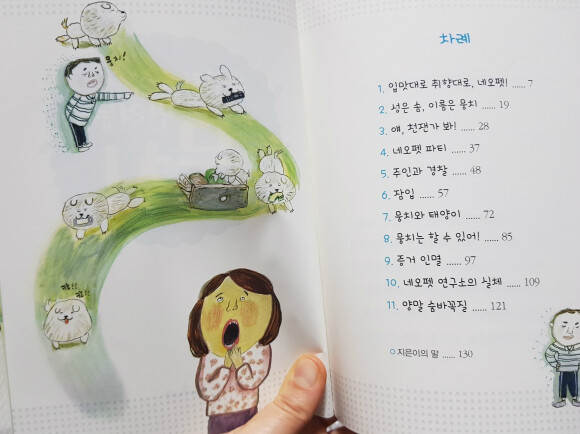 뭉치!
킁!!
킁!!
차례
1. 입맛대로 취향대로, 네오펫! ...... 7
2. 성은 송, 이름은 뭉치 ...... 19
3. 얘, 천잰가 봐! ...... 28
4. 네오펫 파티 ...... 37
5. 주인과 경찰 ...... 48
6. 잠입 ...... 57
7. 뭉치와 태양이 ...... 72
8. 뭉치는 할 수 있어! ...... 85
9. 증거 인멸 ...... 97
10. 네오펫 연구소의 실체 ...... 109
11. 양말 숨바꼭질 ...... 121
지은이의 말 ...... 130